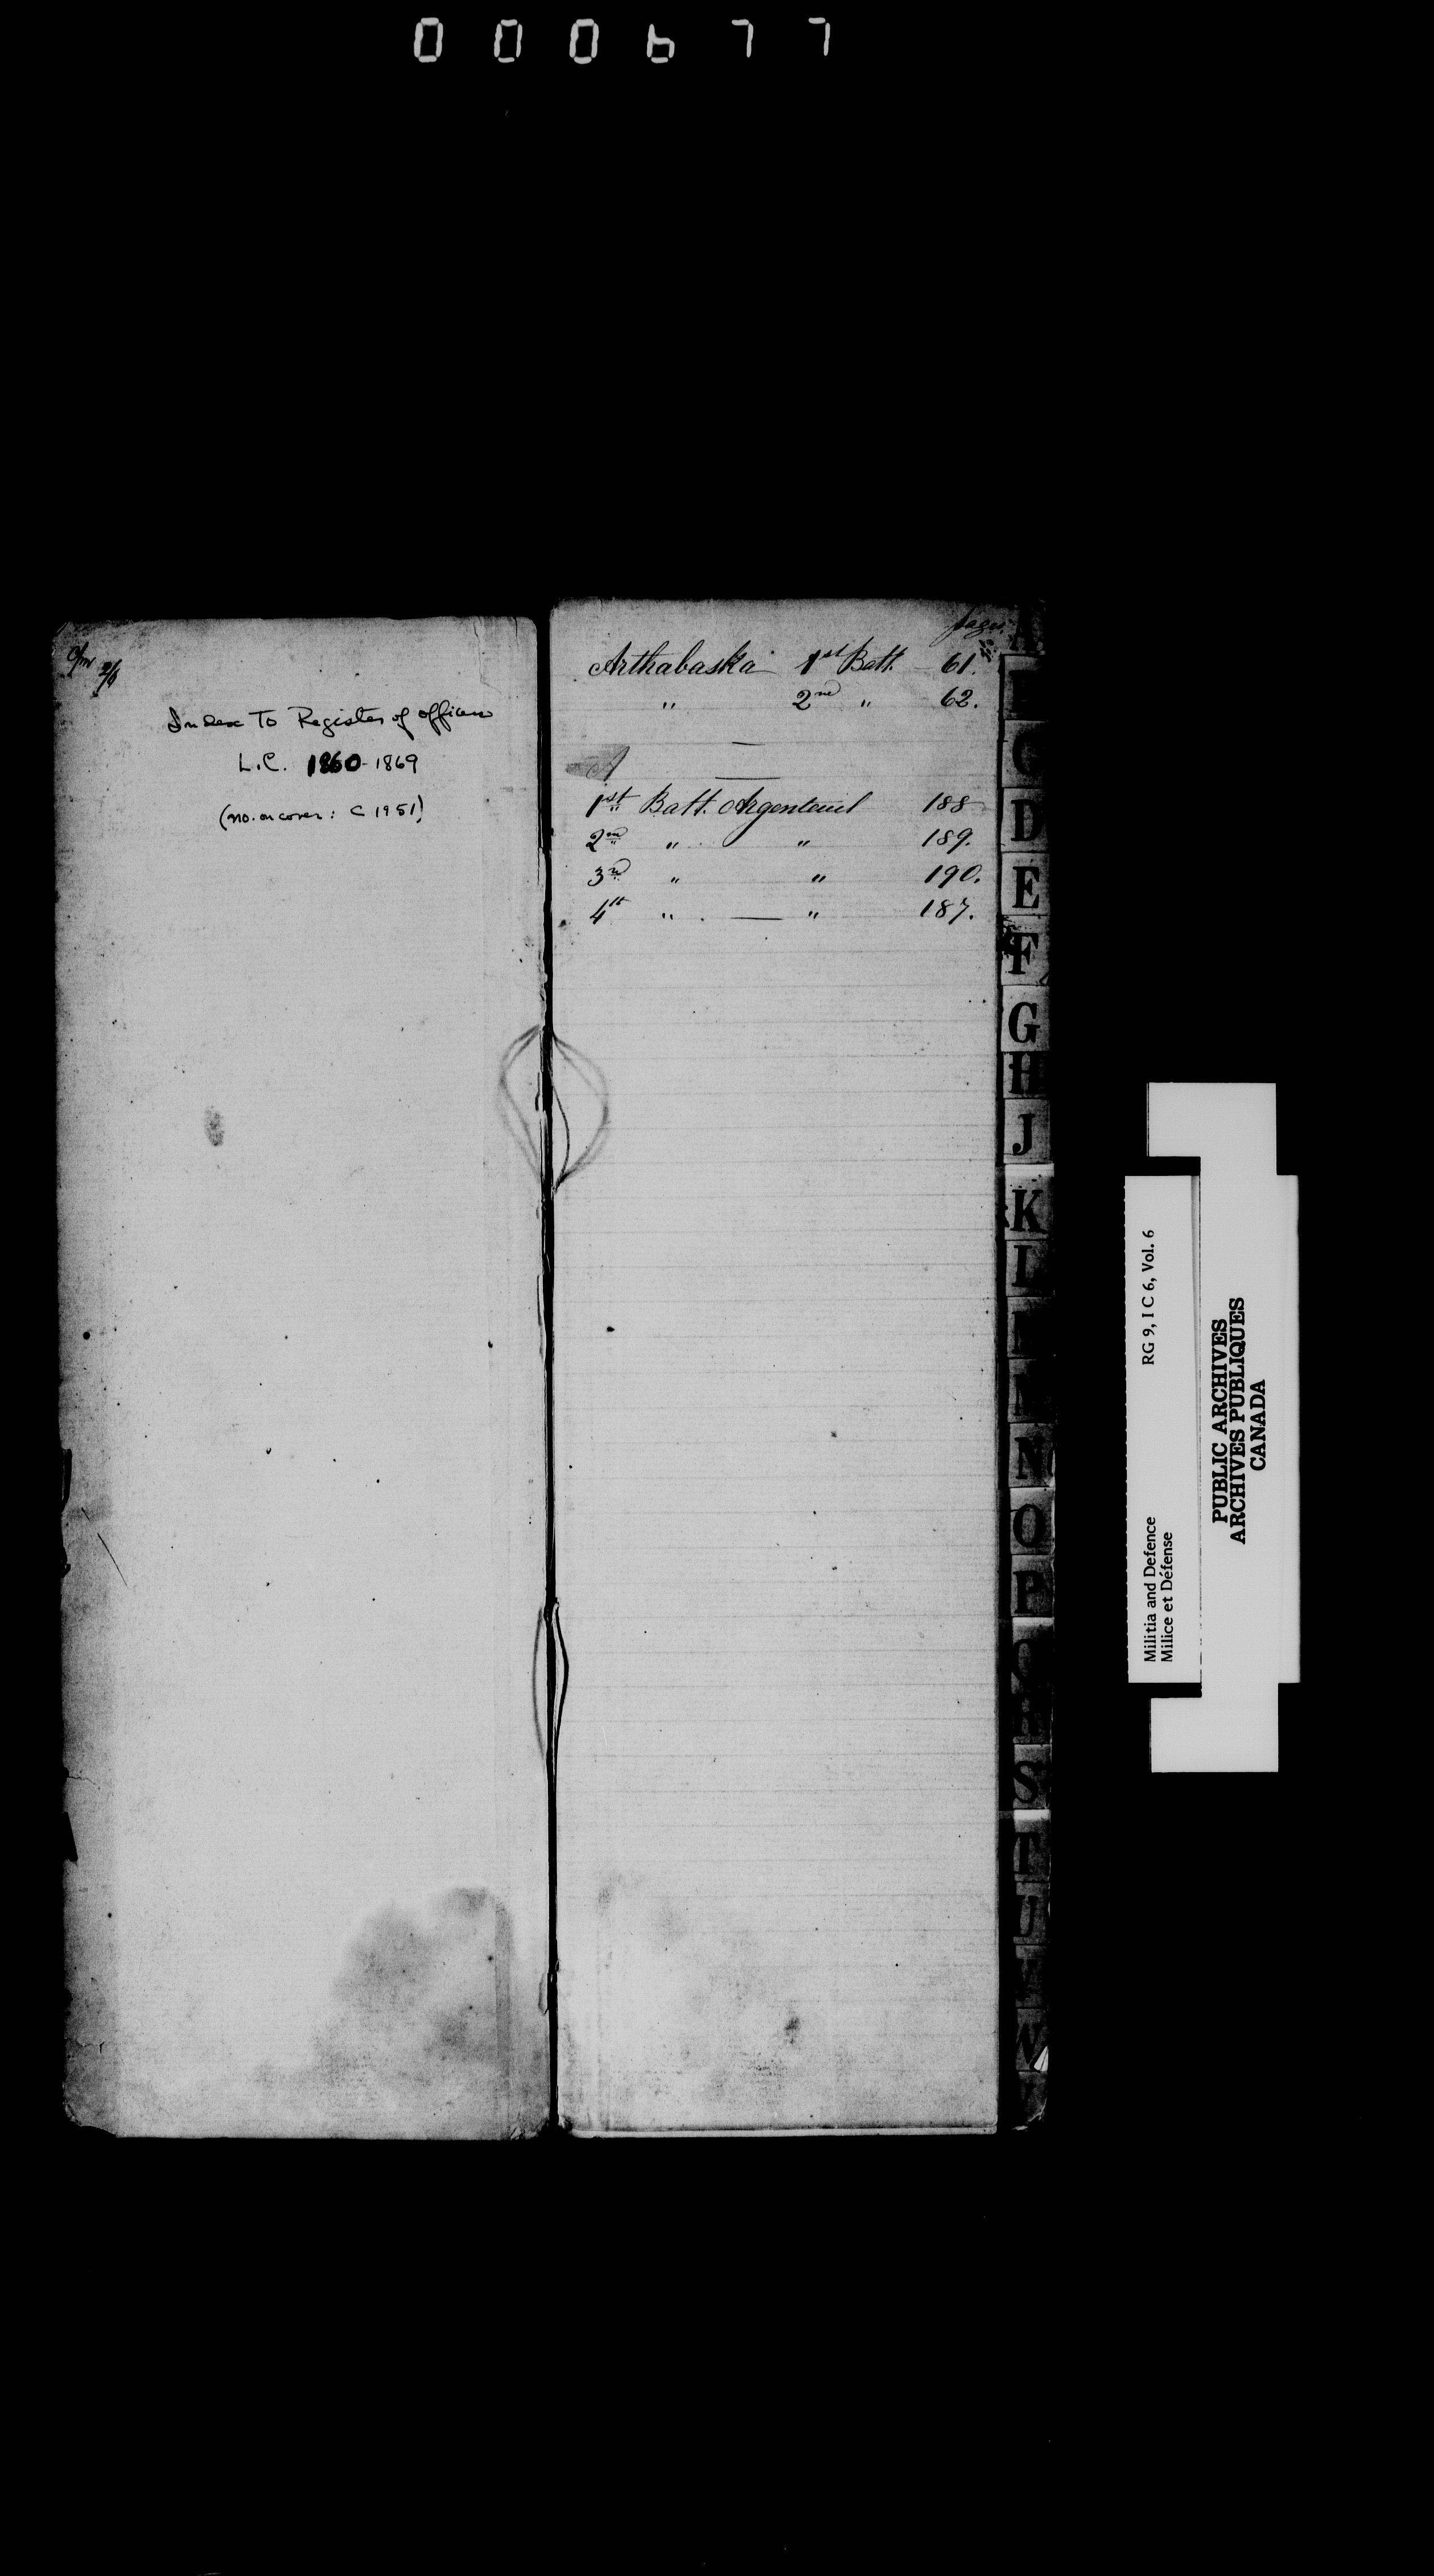 000677
2/6
Index To Register of Officers
L.C. 1860-1869
(no. on cover: C 1951)
pages
Arthabaska 1st Batt. 61.
" 2nd " 62.
A
1st Batt. Argenteuil 188
2nd " " 189.
3rd " " 190.
4th " " 187.
A
C
D
E
F
G
H
J
K
L
N
O
P
S
T
U
W
Militia and Defence RG 9, I C 6, Vol. 6
Milice et Défense
PUBLIC ARCHIVES
ARCHIVES PUBLIQUES
CANADA